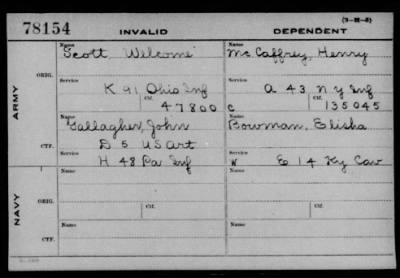 (3-M-8)
78154 INVALID DEPENDENT
Name Name
Scott, Welcome McCaffrey, Henry
ORIG.
Service Service
K 91 Ohio Inf A 43 N Y Inf
Ctf. Ctf.
47800 C 135045
ARMY
Name Name
Gallagher, John Bowman, Elisha
D 5 US Art
CTF.
Service
H 48 Pa Inf W E 14 Ky Cav
Name Name
ORIG.
Service Service
Ctf. Ctf.
NAVY
Name Name
CTF.
Service Service